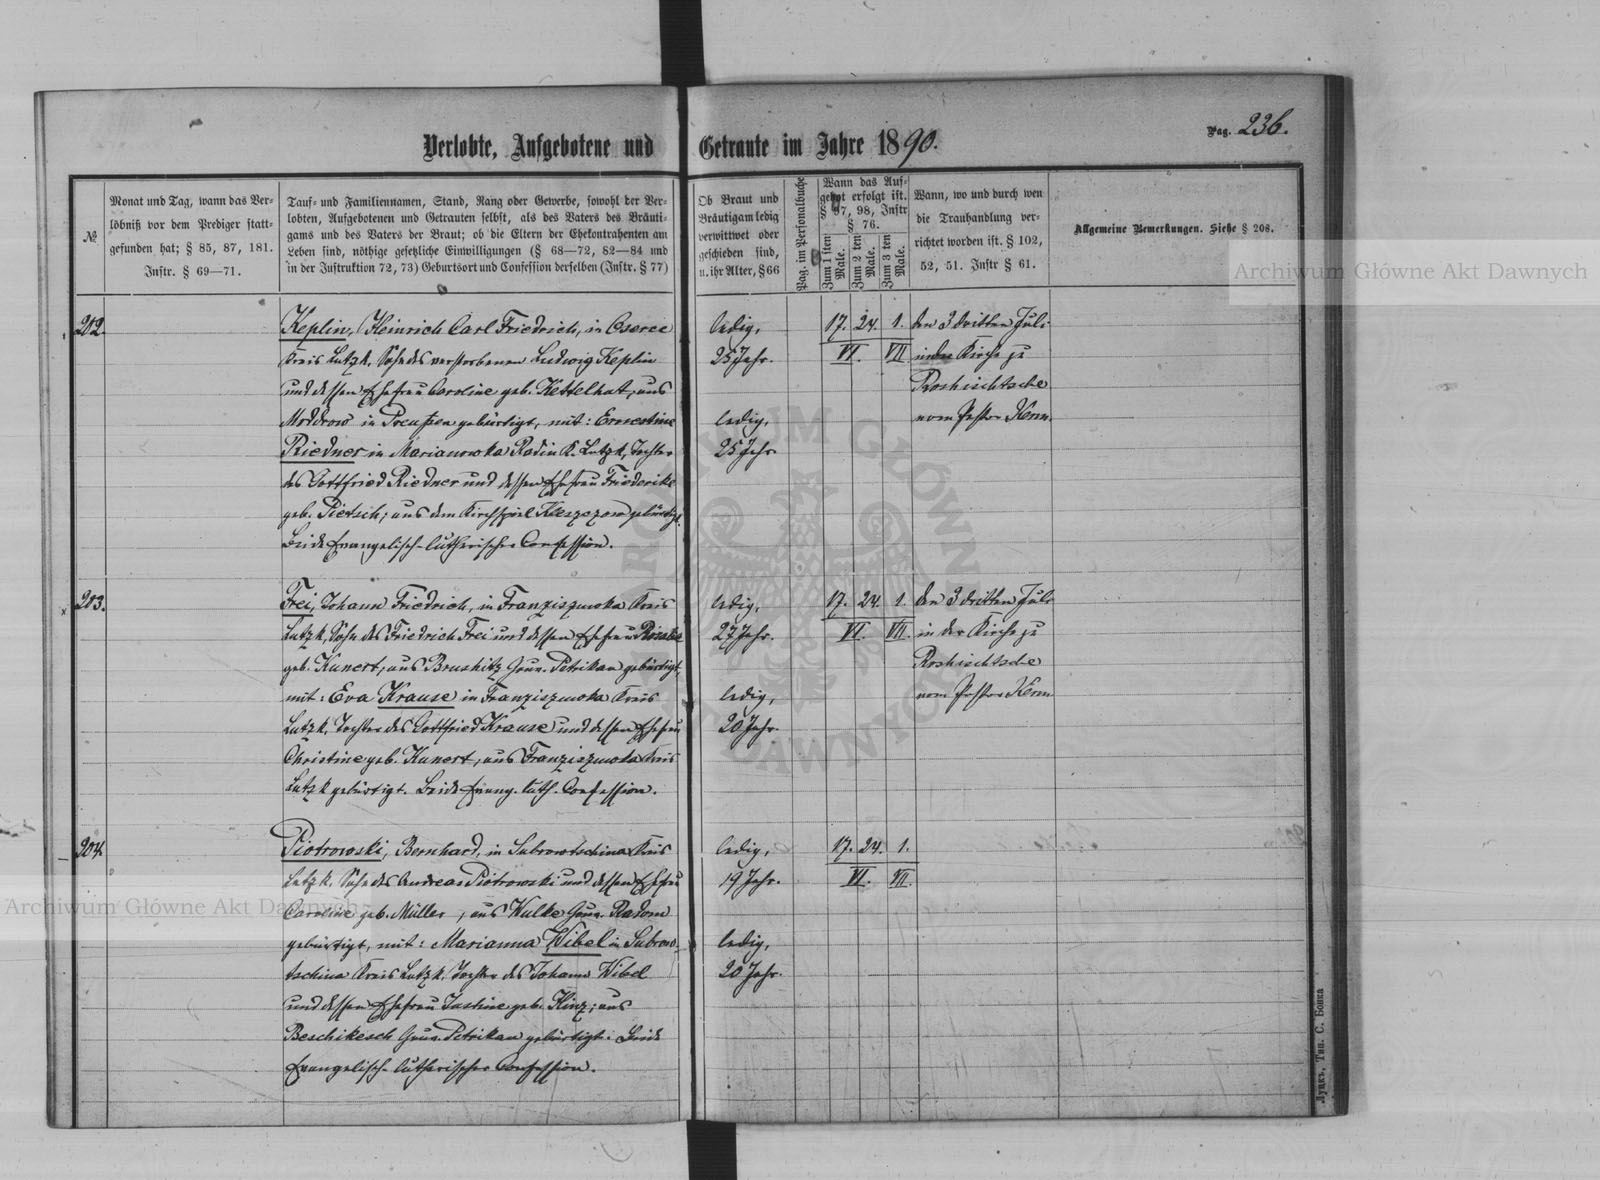 Pag. 236.
Verlobte, Aufgebotene und Getraute im Jahre 1890.
№
Monat und Tag, wann das Ver-
löbniß vor dem Prediger statt-
gefunden hat; § 85, 87, 181.
Instr. § 69—71.
Tauf- und Familiennamen, Stand, Rang oder Gewerbe, sowohl der Ver-
lobten, Aufgebotenen und Getrauten selbst, als des Vaters des Bräuti-
gams und des Vaters der Braut; ob die Eltern der Ehekontrahenten am
Leben sind, nöthige gesetzliche Einwilligungen (§ 68—72, 82—84 und
in der Justruktion 72, 73) Geburtsort und Confession derselben (Instr. § 77)
Ob Braut und
Bräutigam ledig
verwittwet oder
geschieden sind,
u. ihr Alter, § 66
Pag. im Personalbuche
Wann das Auf-
gebot erfolgt ist.
§ 97, 98, Instr
§ 76.
Zum 1 ten
Male.
Zum 2 ten
Male.
Zum 3 ten
Male.
Wann, wo und durch wen
die Trauhandlung ver-
richtet worden ist. § 102,
52, 51. Instr § 61.
Allgemeine Bemerkungen. Siehe § 208.
202.
Keplin, Heinrich Carl Friedrich, in Oseree
Kreis Lutzk, Sohn des verstorbenen Ludwig Keplin
und dessen Ehefrau Caroline geb. Kettelhat, aus
Moddrow in Preußen gebürtigt, mit: Ernestine
Riedner in Marianowka Radin K. Lutzk, Tochter
des Gottfried Riedner und dessen Ehefrau Friederike
geb. Pietsch; aus dem Kirchspiel Kleszczow gebürtigt.
Beide Evangelisch-lutherischer Confession.
ledig,
25 Jahr.
ledig,
25 Jahr.
17. 24. 1.
VI. VII.
den 3 dritten Juli
in der Kirche zu
Roshischtsche
vom Pastor Kern.
203.
Frei, Johann Friedrich, in Franziszwoka Kreis
Lutzk, Sohn des Friedrich Frei und dessen Ehefrau Rosalie
geb. Kunert, aus Brushitz Gouv. Petrikau gebürtigt,
mit: Eva Krause in Franziszwoka Kreis
Lutzk, Tochter des Gottfried Krause und dessen Ehefrau
Christine geb. Kunert, aus Franziszwoka Kreis
Lutzk gebürtigt. Beide Evang. luth. Confession.
ledig,
27 Jahr.
ledig,
20 Jahr.
17. 24. 1.
VI. VII.
den 3 dritten Juli
in der Kirche zu
Roshischtsche
vom Pastor Kern
204.
Piotrowski, Bernhard, in Subrowtschina Kreis
Lutzk, Sohn des Andreas Piotrowski und dessen Ehefrau
Caroline geb. Müller, aus Wulke Gouv. Radom
gebürtigt, mit: Marianna Wibel in Subrow-
tschina Kreis Lutzk, Tochter des Johann Wibel
und dessen Ehefrau Justine geb. Kinz; aus
Beschikesch Gouv. Petrikau gebürtigt. Beide
Evangelisch-lutherischer Confession.
ledig,
19 Jahr.
ledig,
20 Jahr.
17. 24. 1.
VI. VII.
Луцкъ, Тип. С. Бонка
Archiwum Główne Akt Dawnych
Archiwum Główne Akt Dawnych
ARCHIWUM GŁÓWNE AKT DAWNYCH